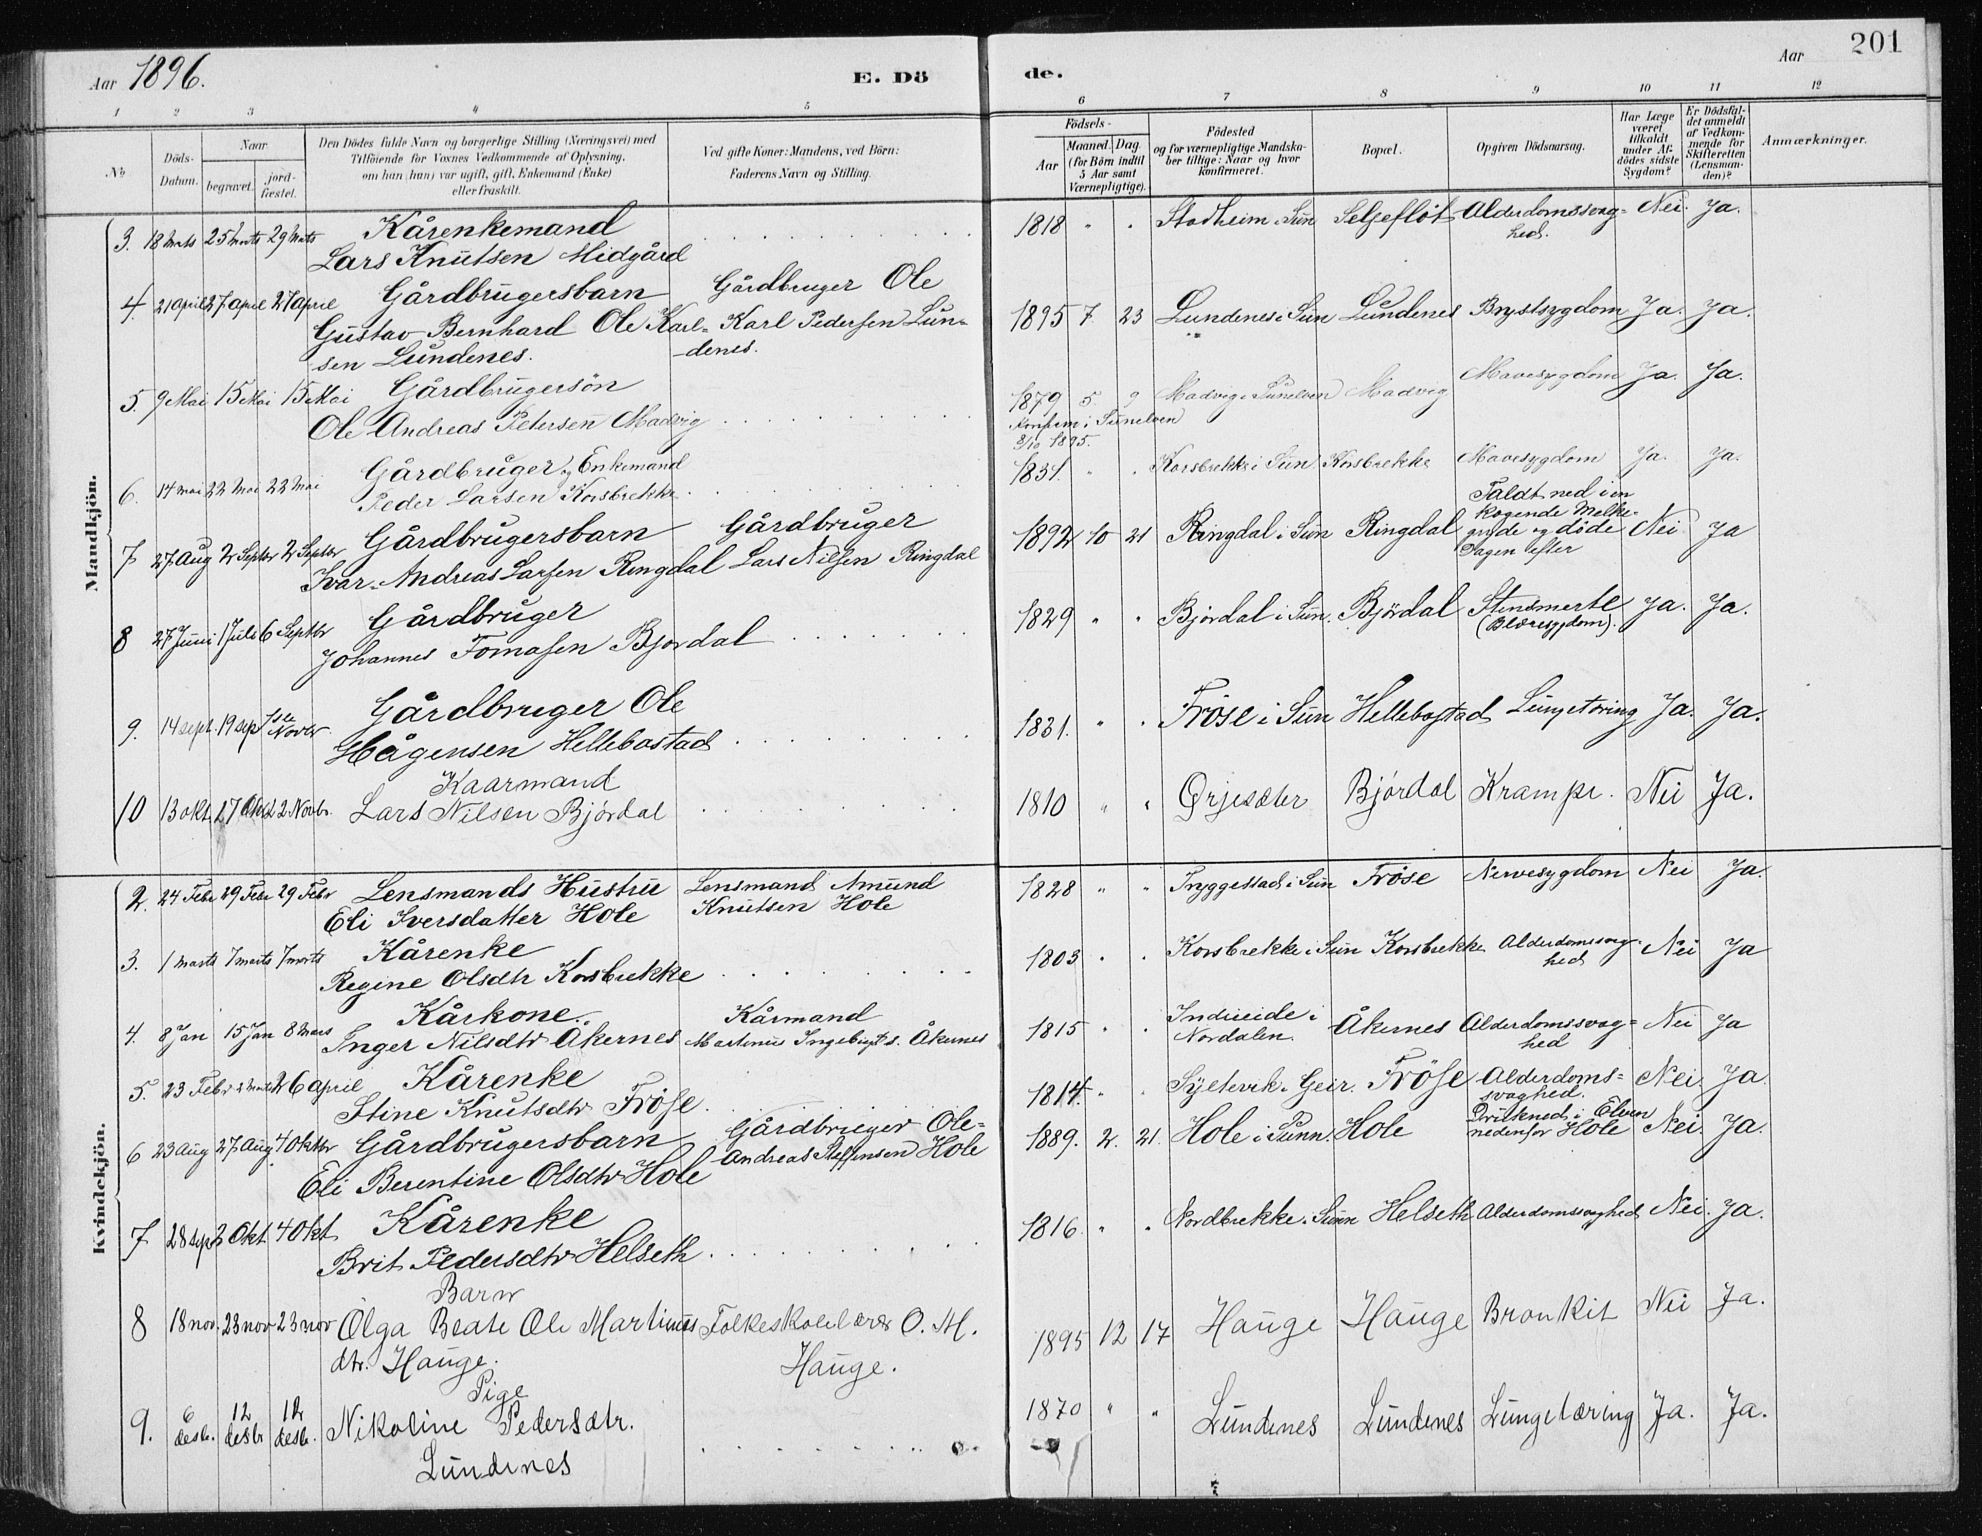 Aar 1896.
E. Dö
de.
Aar
201
1 2 3 4 5 6 7 8 9 10 11 12
No
Döds-Datum.
Naar
begravet.
jord-fæstet.
Den Dödes fulde Navn og borgerlige Stilling (Næringsvei) med
Tilföiende for Voxnes Vedkommende af Oplysning,
om han (hun) var ugift, gift, Enkemand (Enke)
eller fraskilt.
Ved gifte Koner: Mandens, ved Börn:
Faderens Navn og Stilling.
Födsels-
Aar
Maaned. Dag.
(for Börn indtil
5 Aar samt
Værnepligtige).
Födested
og for værnepligtige Mandska-
ber tillige: Naar og hvor
konfirmeret.
Bopæl.
Opgiven Dödsaarsag.
Har Læge
været
tilkaldt
under Af-
dödes sidste
Sygdom?
Er Dödsfal-
det anmeldt
af Vedkom-
mende for
Skifteretten
(Lensman-
den)?
Anmærkninger.
Mandkjön.
3. 18 Marts 25 Marts 29 Marts Kårenkemand 1818 " " Stadheim i Sun Seljeflöt Alderdomssvag= Nei. Ja.
hed.
Lars Knutsen Midgård
4. 21 april 27 april 27 april Gårdbrugersbarn Gårdbruger Ole
Gustav Bernhard Ole Karl= Karl Pedersen Lun= 1895 7 23 Lundenes i Sun Lundenes Brystsygdom Ja. Ja.
sen Lundenes. denes.
5. 9 Mai 15 Mai 15 Mai Gårdbrugersön 1879 5. 9 Madvig i Sunelven Madvig Mavesygdom Ja. Ja.
Ole Andreas Petersen Madvig Konfirm i Sunelven
8/10 1895.
6. 14 mai 22 Mai 22 Mai Gårdbruger og Enkemand 1831. " " Korsbrekke i Sun Korsbrekke Mavesygdom Ja. Ja.
Peder Larsen Korsbrekke
7 27 Aug 2 Septbr 2 Septbr Gårdbrugersbarn Gårdbruger 1892 10 21 Ringdal i Sun Ringdal Faldt ned i en
kogende Melke-
gryde og döde Nei Ja
Dagen efter
Ivar Andreas Larsen Ringdal Lars Nilsen Ringdal
8 27 Juni 1 Juli 6 Septbr Gårdbruger 1829 " " Bjørdal i Sun. Bjørdal Stensmerte Ja. Ja.
(Blæresygdom).
Johannes Tomasen Bjordal
9. 14 sept. 19 sep 1ste Novbr Gårdbruger Ole 1831. " " Fröse i Sun Hellebostad Lungetæring Ja. Ja.
Hågensen Hellebostad
10 13 okt. 17 Okt 22 Novbr. Kaarmand 1810 " " Ørjesæter Bjórdal Krampe. Nei Ja.
Lars Nilsen Bjórdal
Kvindekjön.
2. 24 Febr 29 Febr 29 Febr Lensmands Hustru Lensmand Amund 1828 " " Tryggestad i Sun Fröse Nervesygdom Nei Ja.
Eli Iversdatter Hole Knutsen Hole
3. 1 marts 7 marts 7 marts Kårenke 1803 " " Korsbrekke i Sun Korsbrekke Alderdomssvag- Nei Ja
hed
Regine Olsdtr Korsbrekke
4. 8 Jan 15 Jan 8 Mars Kårkone. Kårmand 1815 " " Indreeide i Åkernes Alderdomssvag= Nei Ja
Nordalen. hed
Inger Nilsdtr Åkernes Martinus Ingebrigts. Åkernes
5. 23 Febr 26 april Kårenke 1814. " " Syltevik i Geir. Fröse Alderdoms= Nei. Ja.
svaghed.
Stine Knutsdtr Fröse.
6 23 Aug 27 Aug 4 Oktbr Gårdbrugersbarn Gårdbruger Ole= 1889. 2. 21. Hole i Sunn. Hole Drukned i Elven Nei. Ja.
nedenfor Hole
Eli Berentine Olsdtr Hole Andreas Steffensen Hole
7 28 sept 2 Okt 4 Okt Kårenke 1816 " " Nordbrekke i Sunn Helseth Alderdomssvaghed Nei. Ja.
Brit Pedersdtr Helseth
8 18 nov. 23 nov 23 nov Barn
Olga Beate Ole Martinus Folkeskolelærer O. M. 1895 12 17 Hauge Hauge Bronkit Nei Ja.
dtr. Hauge. Hauge.
9. 6 desb. 12 desbr desb. Pige 1870 " " Lundenes Lundenes Lungetæring Ja. Ja.
Nikoline Pedersdtr.
Lundenes